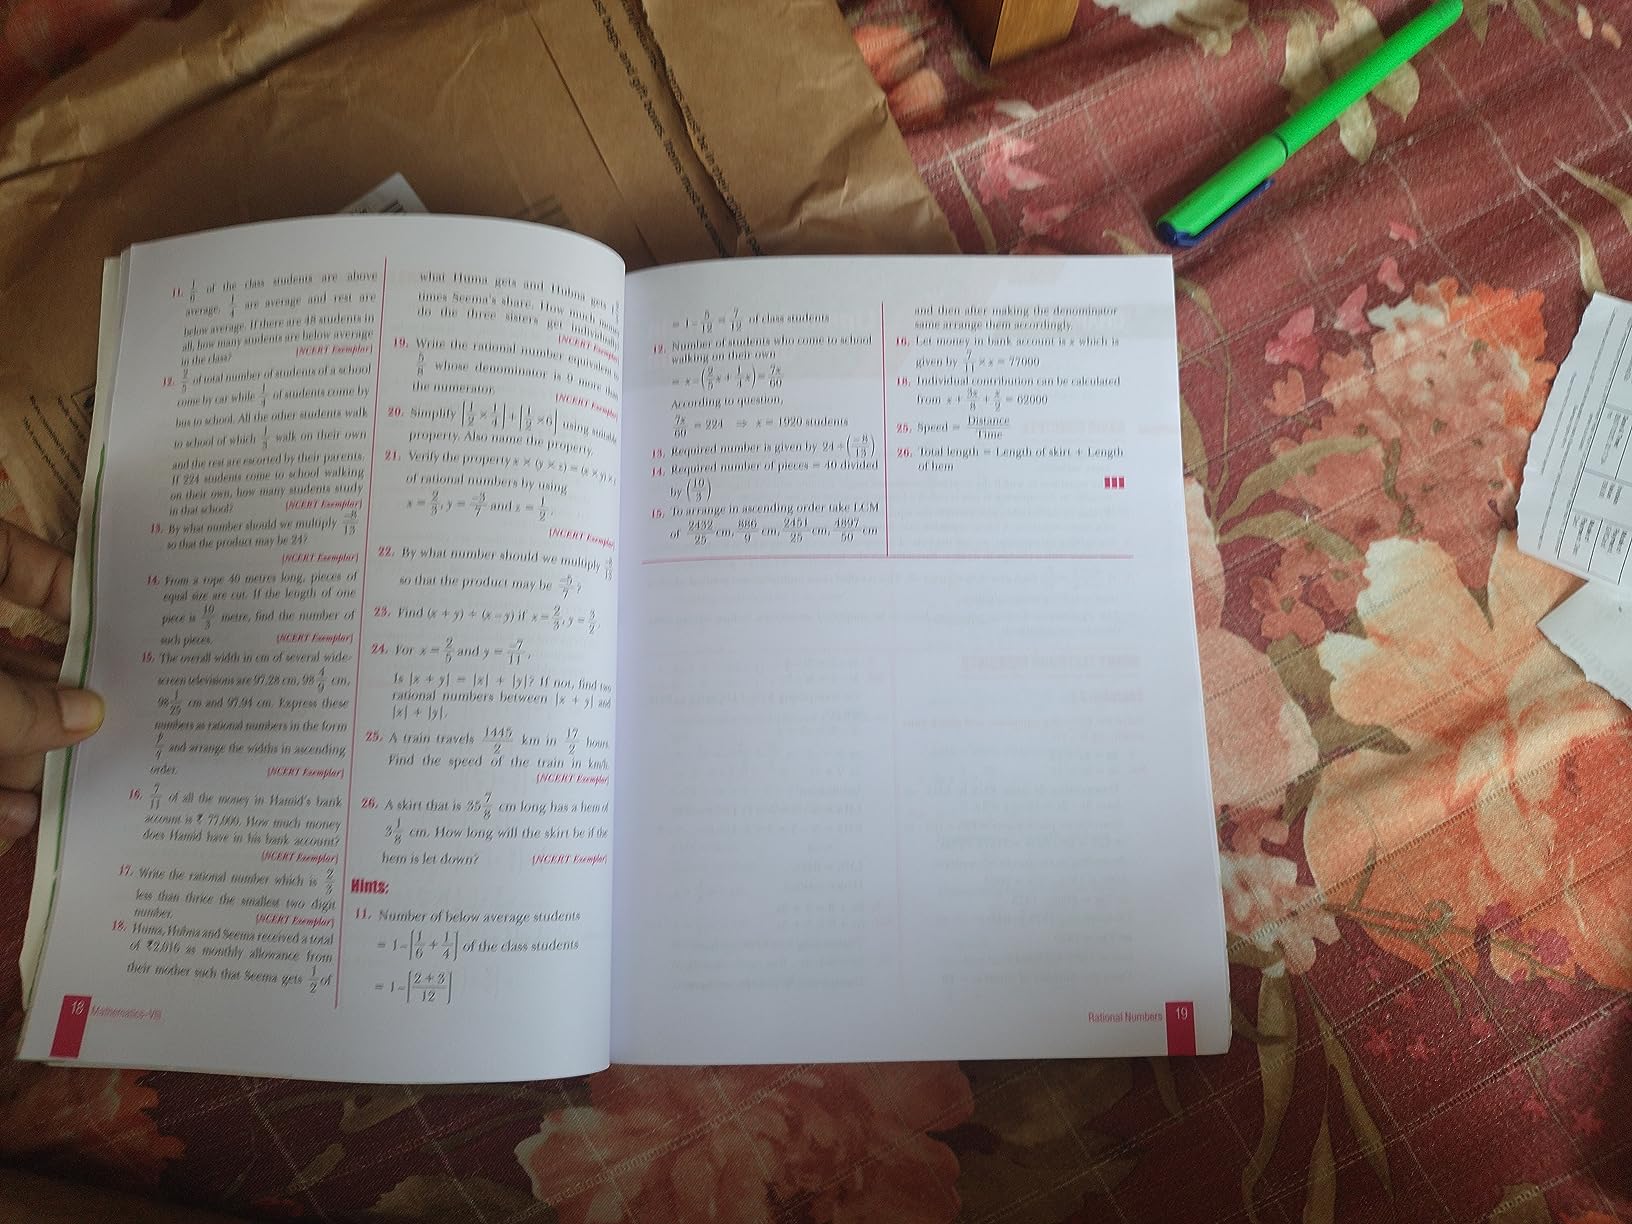 11. 1/6 of the class students are above
average, 1/4 are average and rest are
below average. If there are 48 students in
all, how many students are below average
in the class? [NCERT Exemplar]
12. 2/5 of total number of students of a school
come by car while 1/4 of students come by
bus to school. All the other students walk
to school of which 1/3 walk on their own
and the rest are escorted by their parents.
If 224 students come to school walking
on their own, how many students study
in that school? [NCERT Exemplar]
13. By what number should we multiply -8/13
so that the product may be 24?
[NCERT Exemplar]
14. From a rope 40 metres long, pieces of
equal size are cut. If the length of one
piece is 10/3 metre, find the number of
such pieces. [NCERT Exemplar]
15. The overall width in cm of several wide-
screen televisions are 97.28 cm, 98 4/9 cm,
98 1/25 cm and 97.94 cm. Express these
numbers as rational numbers in the form
p/q and arrange the widths in ascending
order. [NCERT Exemplar]
16. 7/11 of all the money in Hamid's bank
account is ₹ 77,000. How much money
does Hamid have in his bank account?
[NCERT Exemplar]
17. Write the rational number which is 2/3
less than thrice the smallest two digit
number. [NCERT Exemplar]
18. Huma, Hubna and Seema received a total
of ₹2,016 as monthly allowance from
their mother such that Seema gets 1/2 of
18 Mathematics–VIII
what Huma gets and Hubna gets
times Seema's share. How much money
do the three sisters get individually
[NCERT Exemplar]
19. Write the rational number equivalent to
5/6 whose denominator is 9 more than
the numerator. [NCERT Exemplar]
20. Simplify [1/2 × 1/4] + [1/2 × 6] using suitable
property. Also name the property.
21. Verify the property x × (y × z) = (x × y) ×
of rational numbers by using
x = 2/3, y = -3/7 and z = 1/2.
[NCERT Exemplar]
22. By what number should we multiply
so that the product may be -5/7?
23. Find (x + y) ÷ (x – y) if x = 2/3, y = 3/2.
24. For x = 2/5 and y = -7/11,
Is |x + y| = |x| + |y|? If not, find two
rational numbers between |x + y| and
|x| + |y|.
25. A train travels 1445/2 km in 17/2 hours.
Find the speed of the train in km/h.
[NCERT Exemplar]
26. A skirt that is 35 7/8 cm long has a hem of
3 1/8 cm. How long will the skirt be if the
hem is let down? [NCERT Exemplar]
Hints:
11. Number of below average students
= 1 – [1/6 + 1/4] of the class students
= 1 – [2 + 3/12]
= 1 – 5/12 = 7/12 of class students
12. Number of students who come to school
walking on their own
= x – (2/5 x + 1/4 x) = 7x/60
According to question,
7x/60 = 224 ⇒ x = 1920 students
13. Required number is given by 24 ÷ (-8/13)
14. Required number of pieces = 40 divided
by (10/3)
15. To arrange in ascending order take LCM
of 2432/25 cm, 886/9 cm, 2451/25 cm, 4897/50 cm
and then after making the denominator
same arrange them accordingly.
16. Let money in bank account is x which is
given by 7/11 × x = 77000
18. Individual contribution can be calculated
from x + 3x/8 + x/2 = 62000
25. Speed = Distance/Time
26. Total length = Length of skirt + Length
of hem
Rational Numbers 19